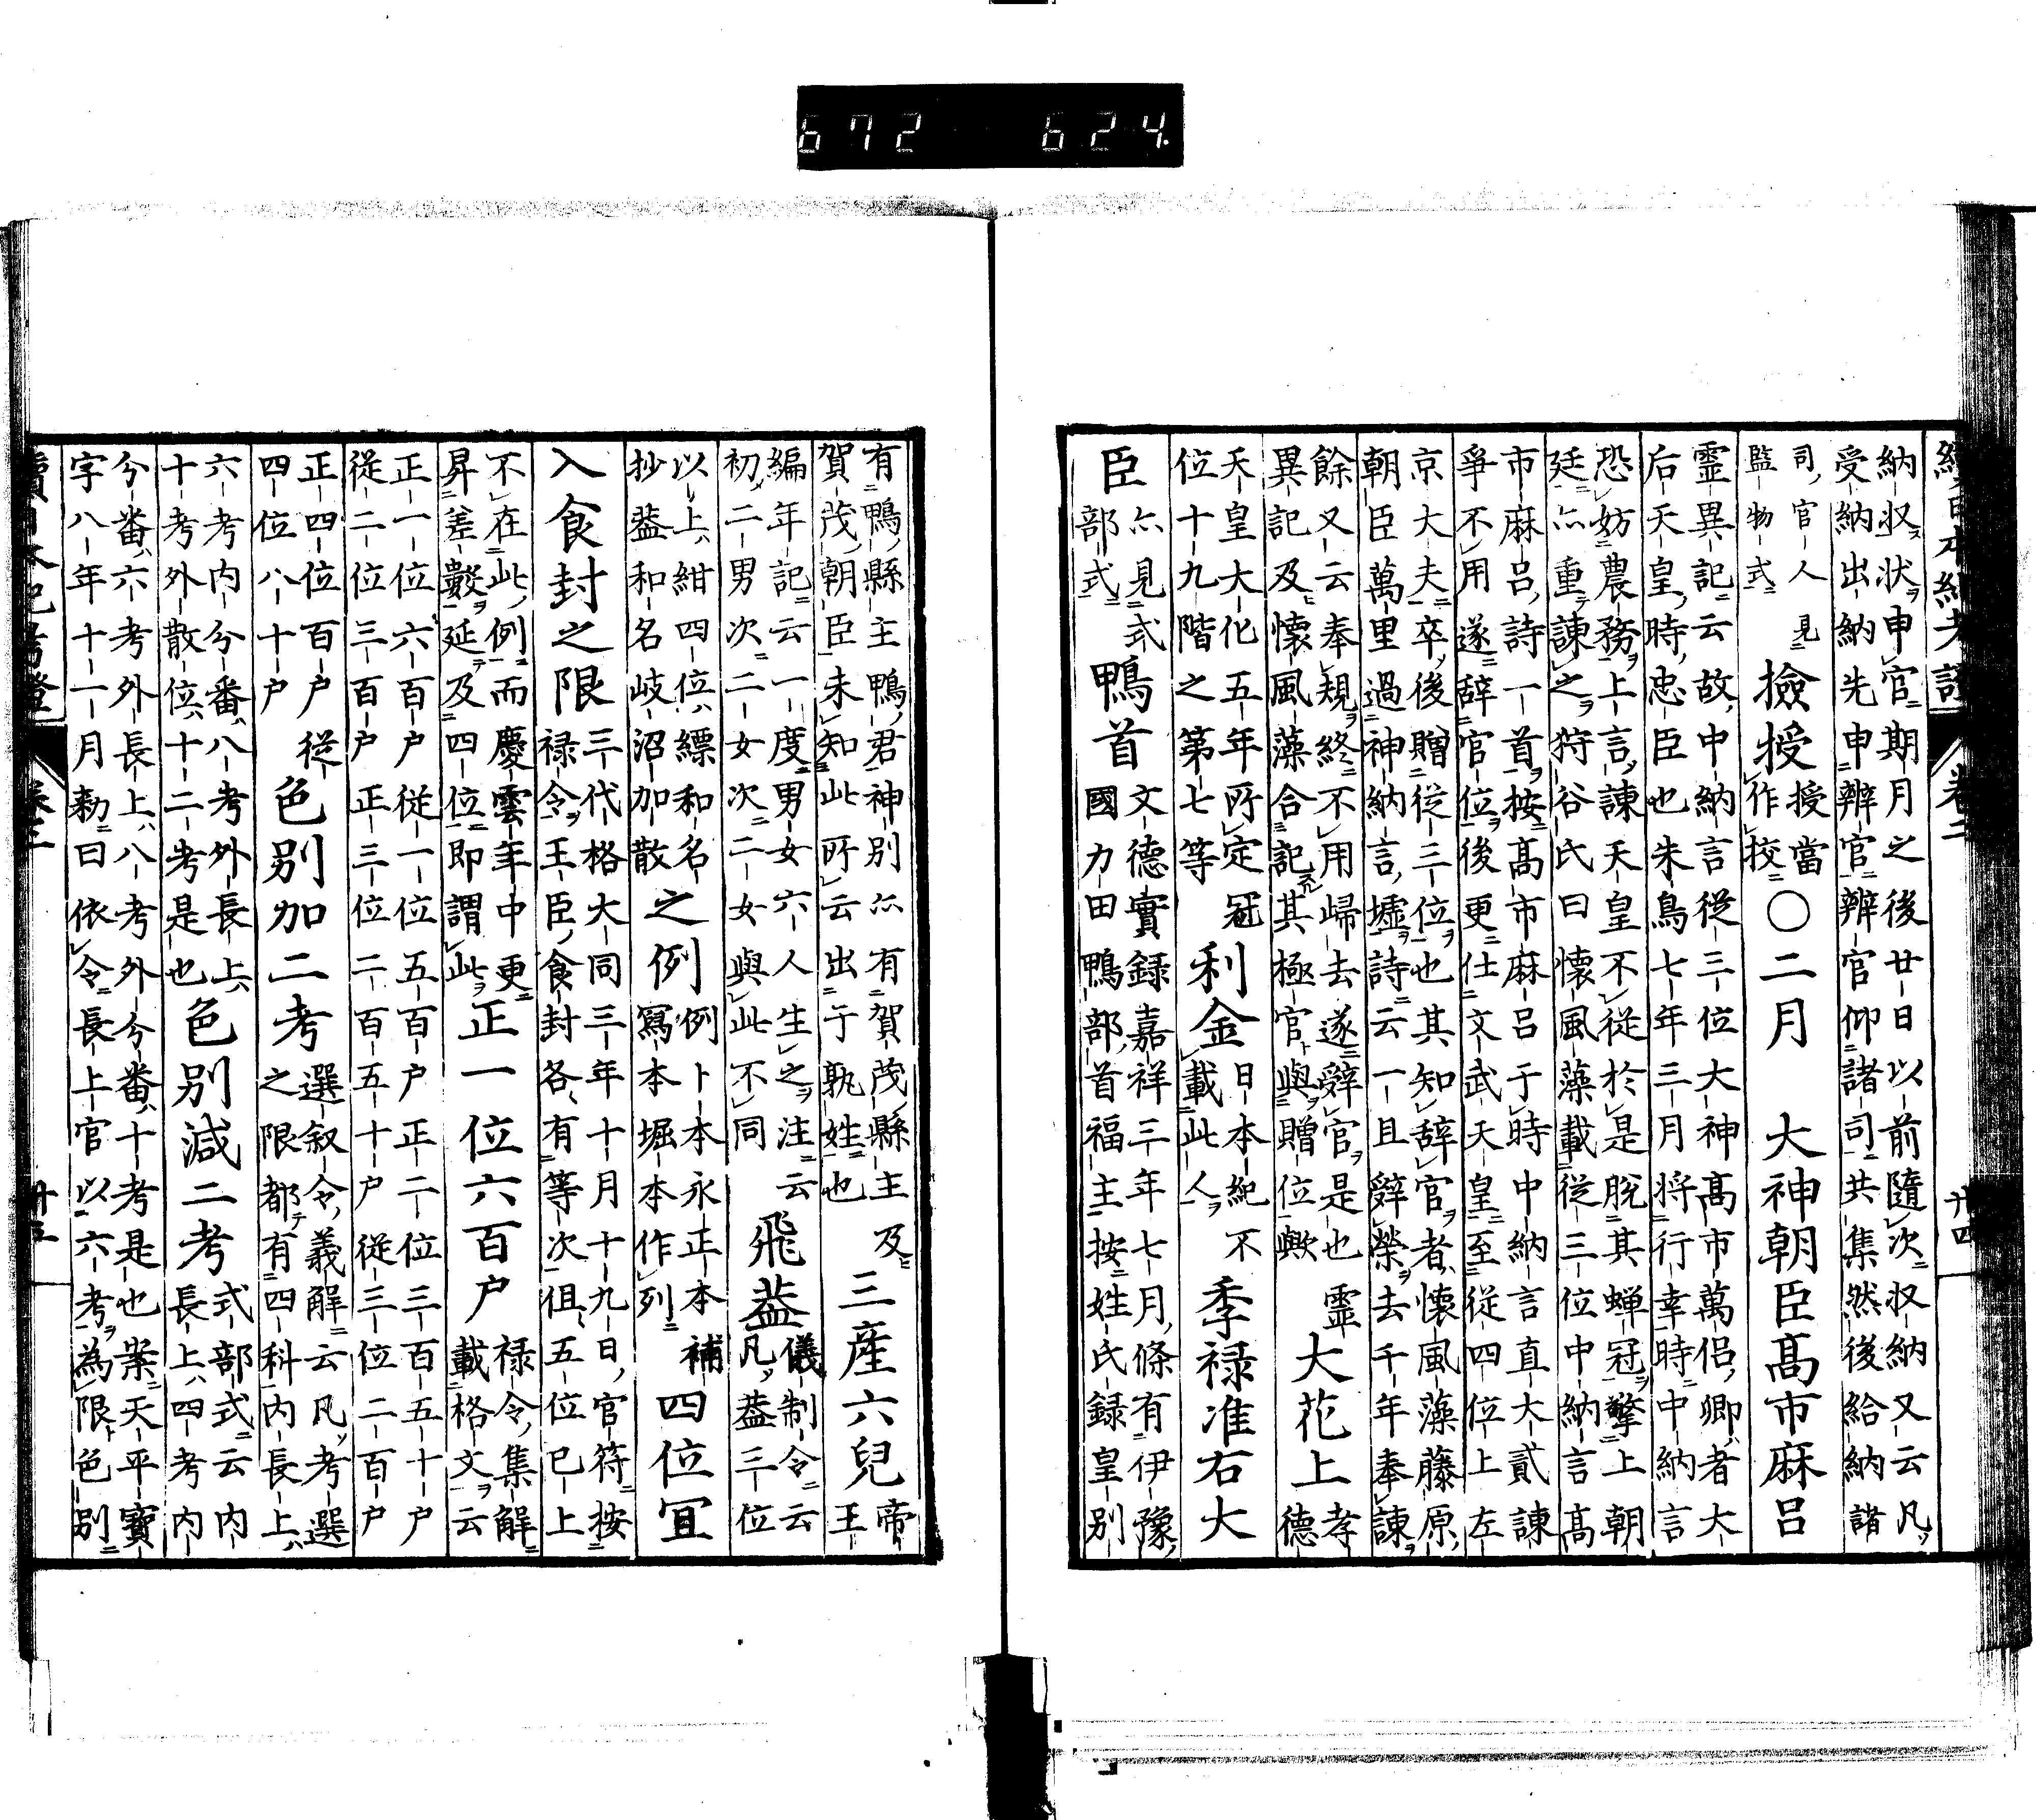 672 624.
續日本紀考證 卷二 廿四
納収状申官期月之後廿日以前隨次収納又云凡
受納出納先申辨官辨官仰諸司共集然後給納諸
司官人見
監物式
撿授授當
作挍
〇二月 大神朝臣高市麻呂
靈異記云故中納言從三位大神高市萬侶卿者大
后天皇時忠臣也朱鳥七年三月將行幸時中納言
恐妨農務上言諫天皇不從於是脱其蝉冠擎上朝
廷亦重諫之狩谷氏曰懷風藻載從三位中納言髙
市麻呂詩一首按髙市麻呂于時中納言直大貳諫
爭不用遂辞官位後更仕文武天皇至從四位上左
京大夫卒後贈從三位也其知辞官者懷風藻藤原
朝臣萬里過神納言墟詩云一旦辤榮去千年奉諫
餘又云奉規終不用歸去遂辤官是也靈
異記及懷風藻合記其極官與贈位歟
大花上孝
德
天皇大化五年所定冠
位十九階之第七等
利金日本紀不
載此人
季禄准右大
臣亦見式
部式
鴨首文德實録嘉祥三年七月條有伊豫
國力田鴨部首福主按姓氏録皇別
有鴨縣主鴨君神別亦有賀茂縣主及
賀茂朝臣未知此所云出于孰姓也
三産六兒帝
王
編年記云一度男女六人生之注云
初二男次二女次二女與此不同
飛葢儀制令云
凡葢三位
以上紺四位縹和名
抄葢和名岐沼加散
之例例卜本永正本補
寫本堀本作列
四位冝
入食封之限三代格大同三年十月十九日官符按
禄令王臣食封各有等次但五位已上
不在此例而慶雲年中更
昇差數延及四位即謂此
正一位六百户禄令集解
載格文云
正一位六百户從一位五百户正二位三百五十户
從二位三百户正三位二百五十户從三位二百户
正四位百户從
四位八十户
色别加二考選叙令義解云凡考選
之限都有四科内長上
六考内分番八考外長上
十考外散位十二考是也
色别减二考式部式云内
長上四考内
分番六考外長上八考外分番十考是也案天平寶
字八年十一月勅曰依令長上官以六考為限色别
續日本紀考證 卷二 廿五